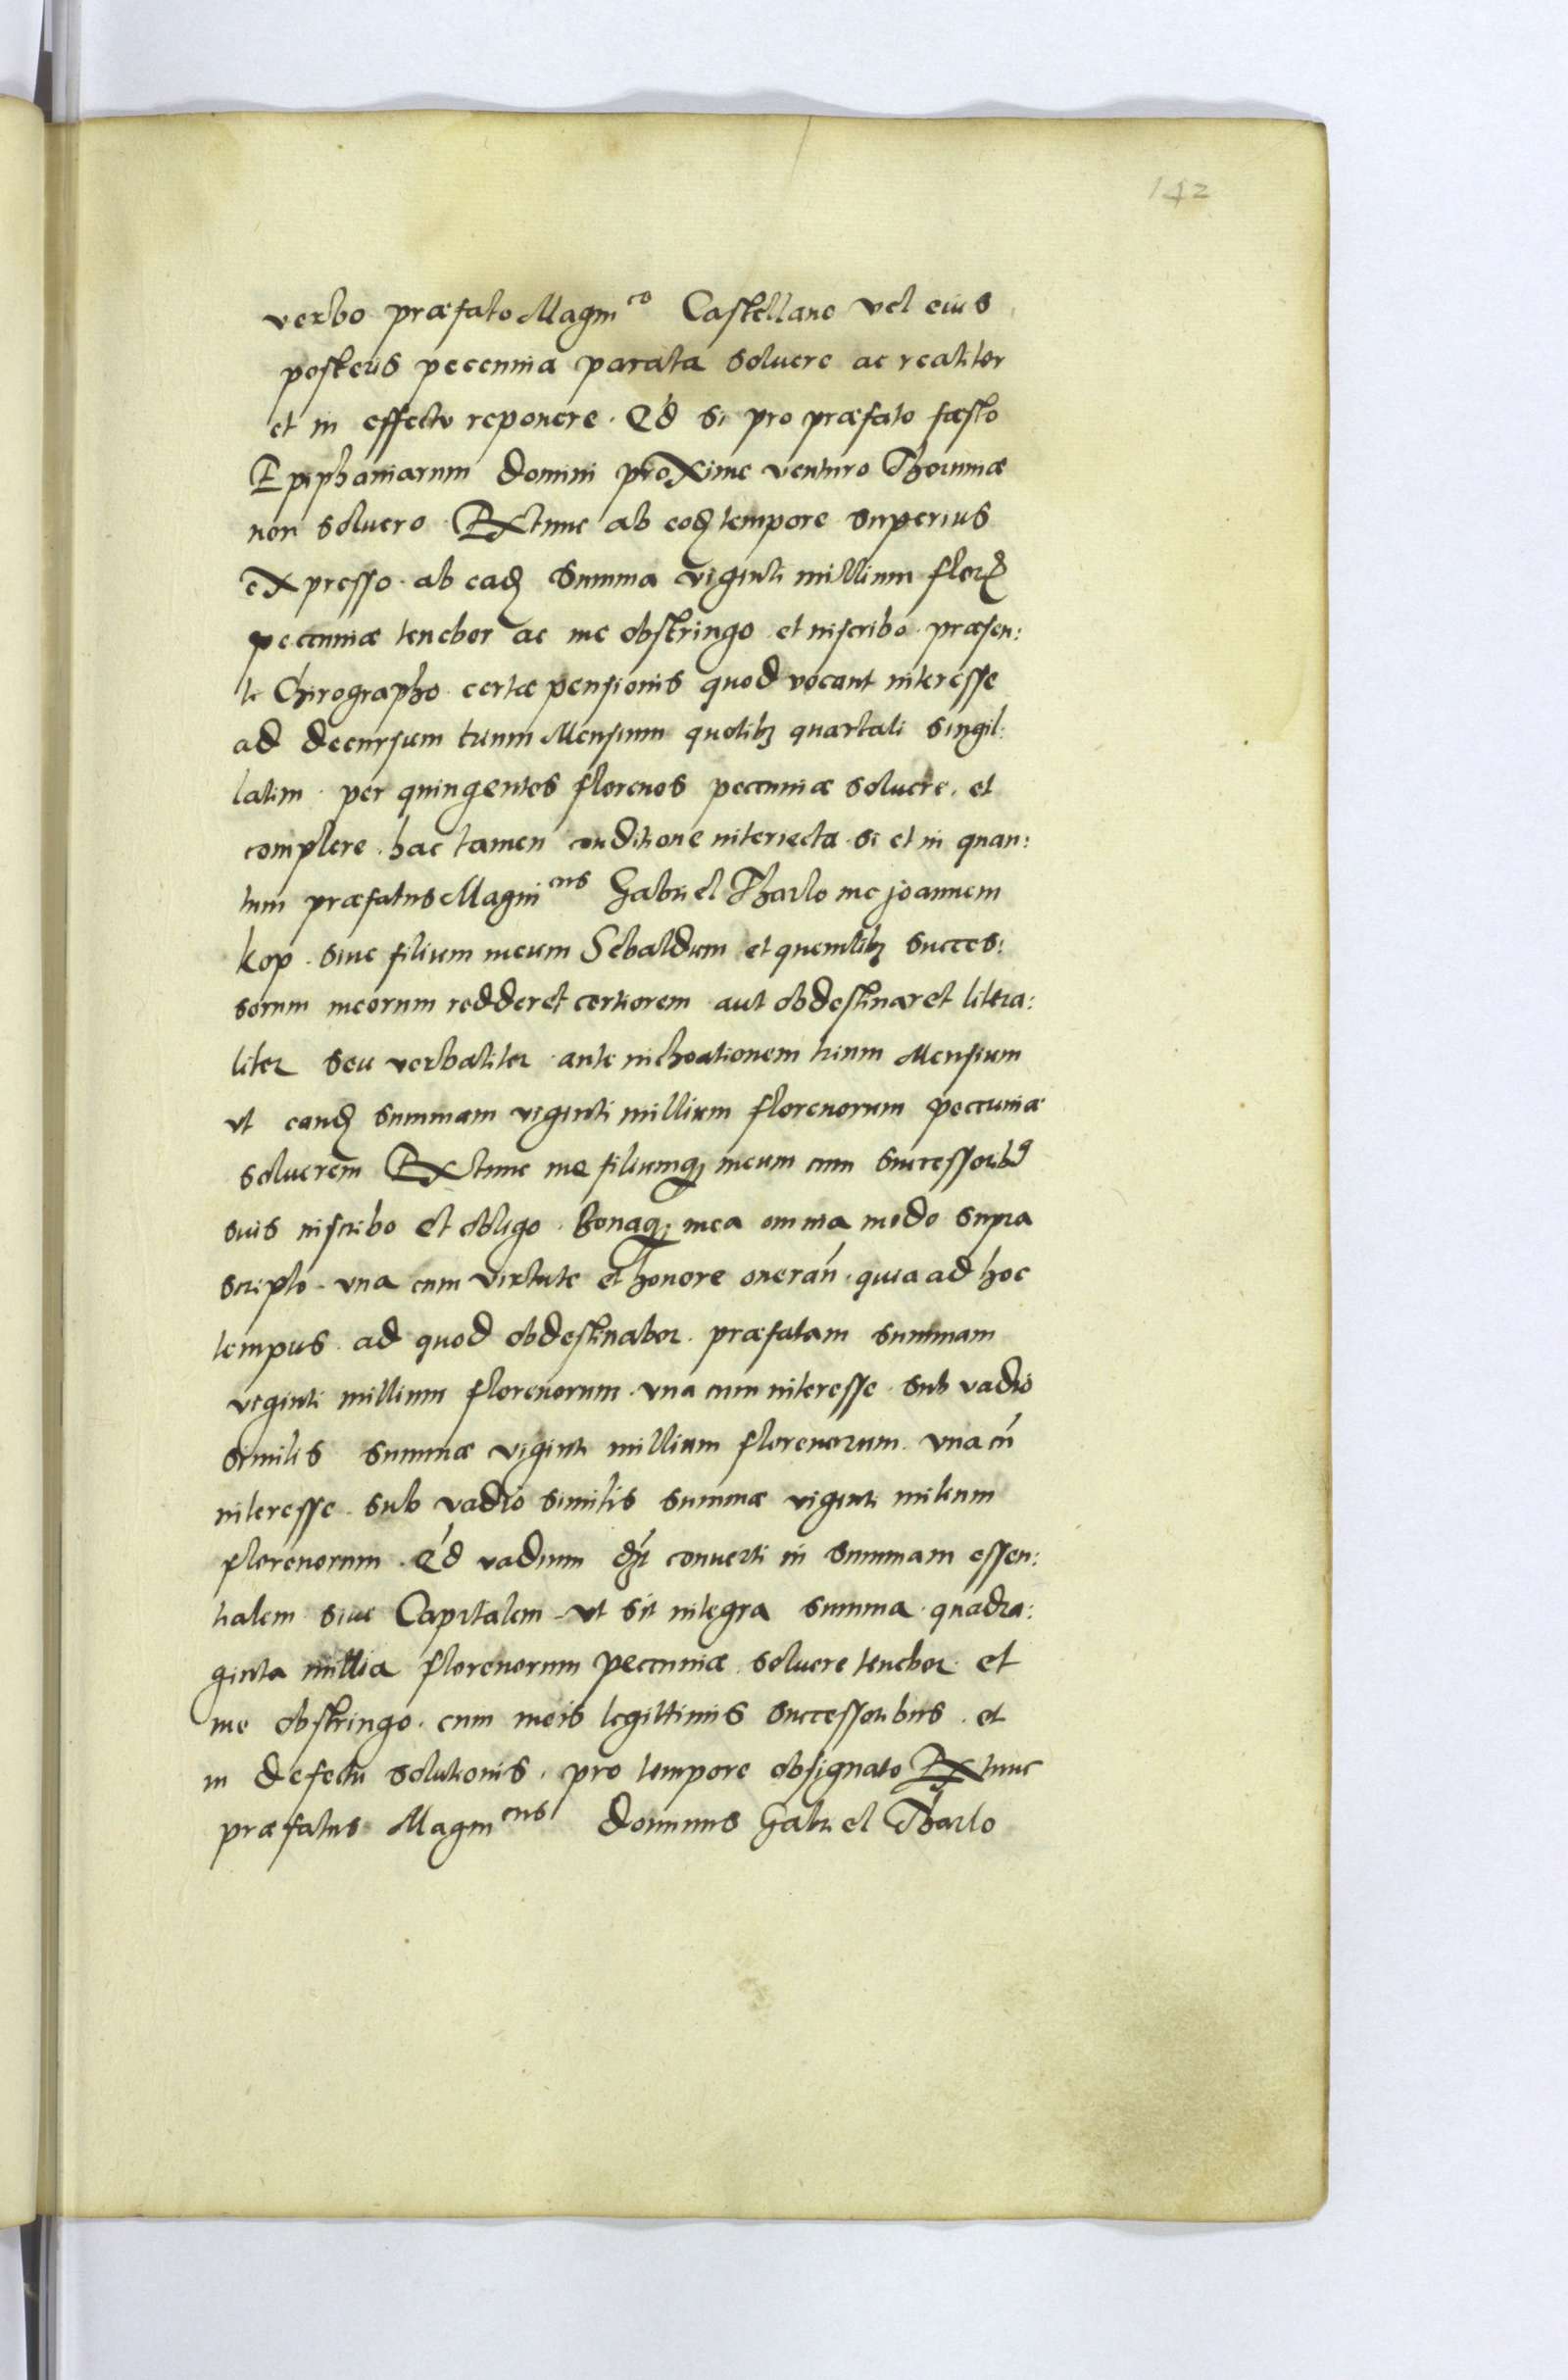 142
verbo præfato Magnico Castellano vel eius
posteris pecunia parata soluere ac realiter
et in effectu reponere. Qd si pro præfato fæsto
Epiphaniarum Domini proxime venturo Thoruniæ
non soluero. Extunc ab eodȝ tempore superius
expresso. ab eadȝ summa viginti millium florꝭ
pecuniæ tenebor ac me obstringo et inscribo præsen:
te Chirographo certæ pensionis quod vocant interesse
ad decursum trium Mensium quolibȝ quartali singil:
latim per quingentos florenos pecuniæ soluere. et
complere. hac tamen conditione interiecta. si et in quan:
tum præfatus Magnicus Gabriel Tharlo me joannem
kop. siue filium meum Sebaldum et quemlibȝ succes:
sorum meorum redderet certiorem aut obdestinaret litera:
liter seu verbaliter. ante inchoationem trium Mensium
vt eandȝ summam viginti millium florenorum pecuniæ
soluerem Extunc me filiumqȝ meum cum successoribꝰ
suis inscribo et obligo. Bonaqȝ mea omnia modo supra
scripto. vna cum virtute et honore onerań. quia ad hoc
tempus. ad quod obdestinabor. præfatam summam
viginti millium florenorum. vna cum interesse. sub vadio
similis summæ viginti millium florenorum. vna cū
interesse. sub vadio similis summæ viginti milium
florenorum. Qd vadium converti in summam essen:
tialem siue Capitalem. vt sit integra summa. quadra:
ginta millia florenorum pecuniæ soluere tenebor. et
me obstringo. cum meis legittimis successoribus. et
in defectu solutionis. pro tempore obsignato Extunc
præfatus Magnicus Dominus Gabriel Tharlo